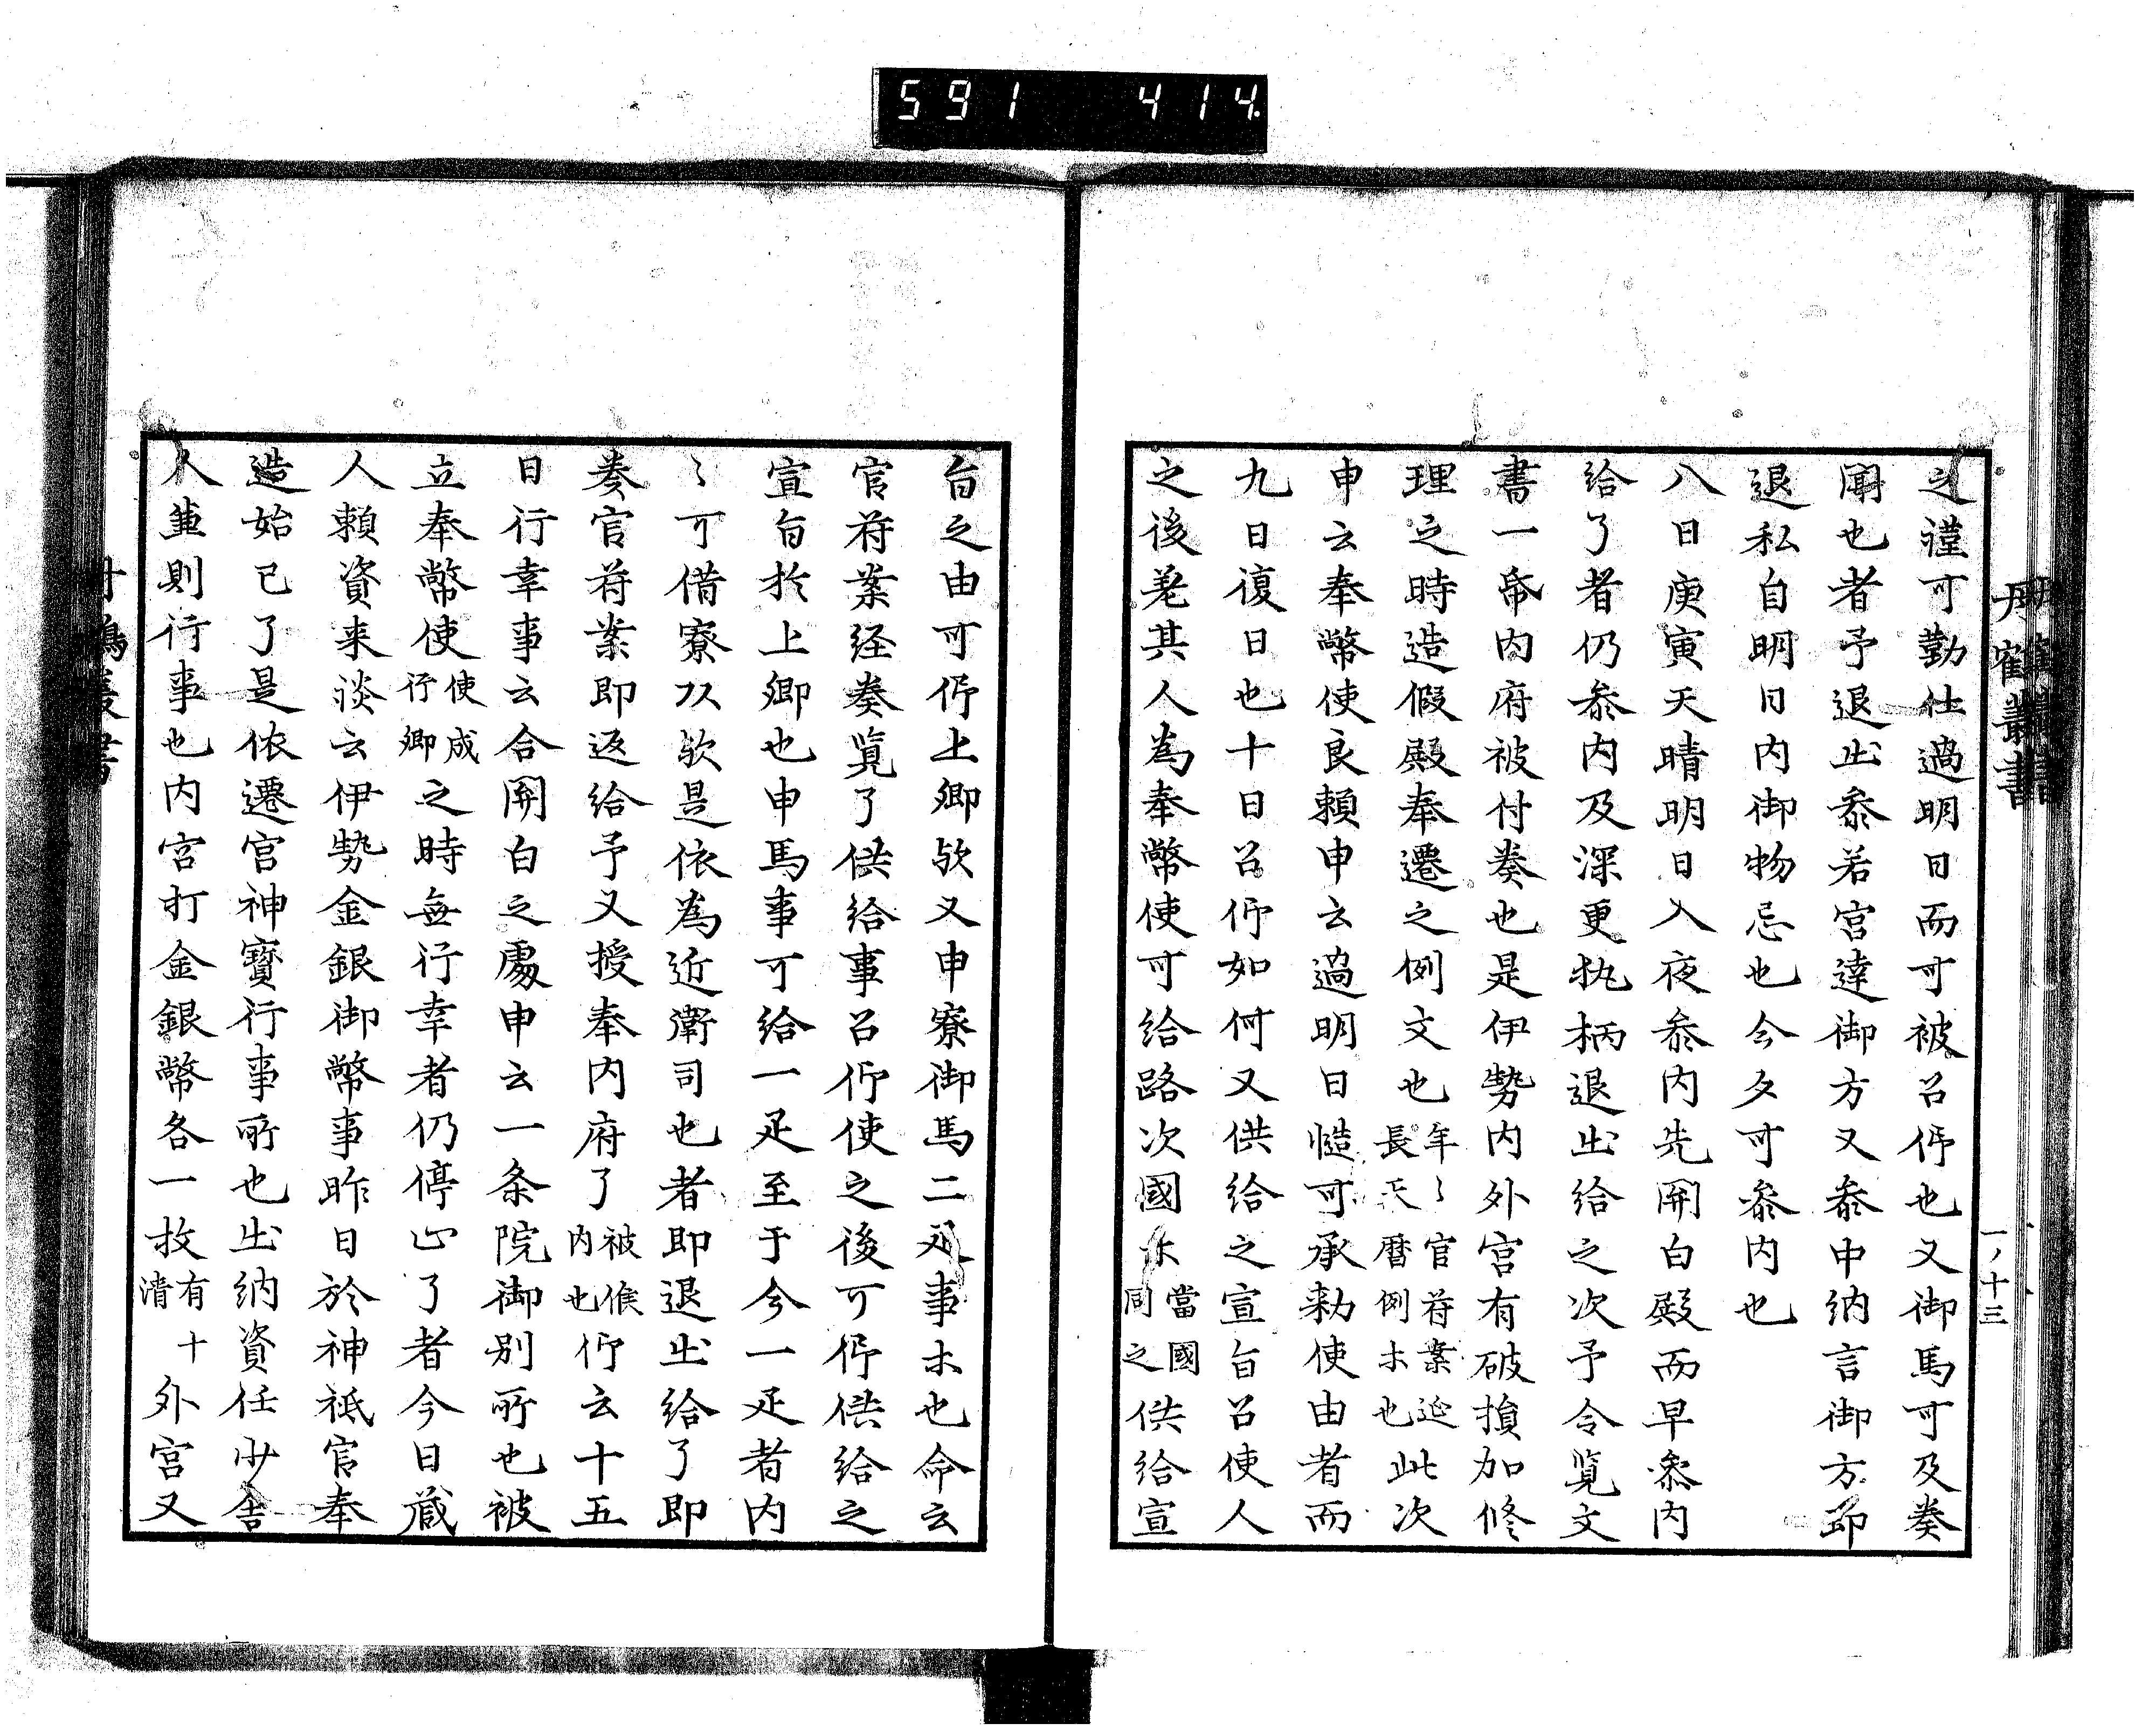 591 414
丹鶴叢書
一ノ十三
之謹可勤仕過明日而可被召仰也又御馬可及奏
聞也者予退出参若宮達御方又参中納言御方即
退私自明日内御物忌也今夕可参内也
八日庚寅天晴明日入夜参内先関白殿而早参内
給了者仍参内及深更执柄退出給之次予令覧文
書一帋内府被付奏也是伊勢内外宮有破損加修
理之時造假殿奉遷之例文也年〻官苻案延長天暦例木也此次
申云奉幣使良頼申云過明日慥可承勅使由者而
九日復日也十日召仰如何又供給之宣旨召使人
之後差其人為奉幣使可給路次國木當國同之供給宣
旨之由可仰上卿欤又申寮御馬二疋事木也命云
官苻案経奏覧了供給事召仰使之後可仰供給之
宣旨扵上卿也申馬事可給一疋至于今一疋者内
〻可借寮以欤是依為近衛司也者即退出給了即
奏官苻案即返給予又授奉内府了被候内也仰云十五
日行幸事云合関白之處申云一条院御別所也被
立奉幣使使成行卿之時無行幸者仍停止了者今日蔵
人頼資来談云伊勢金銀御幣事昨日於神祇官奉
造始已了是依遷宮神寳行事所也出納資任少舎
人並則行事也内宮打金銀幣各一枚有清十外宮又
丹鶴叢書